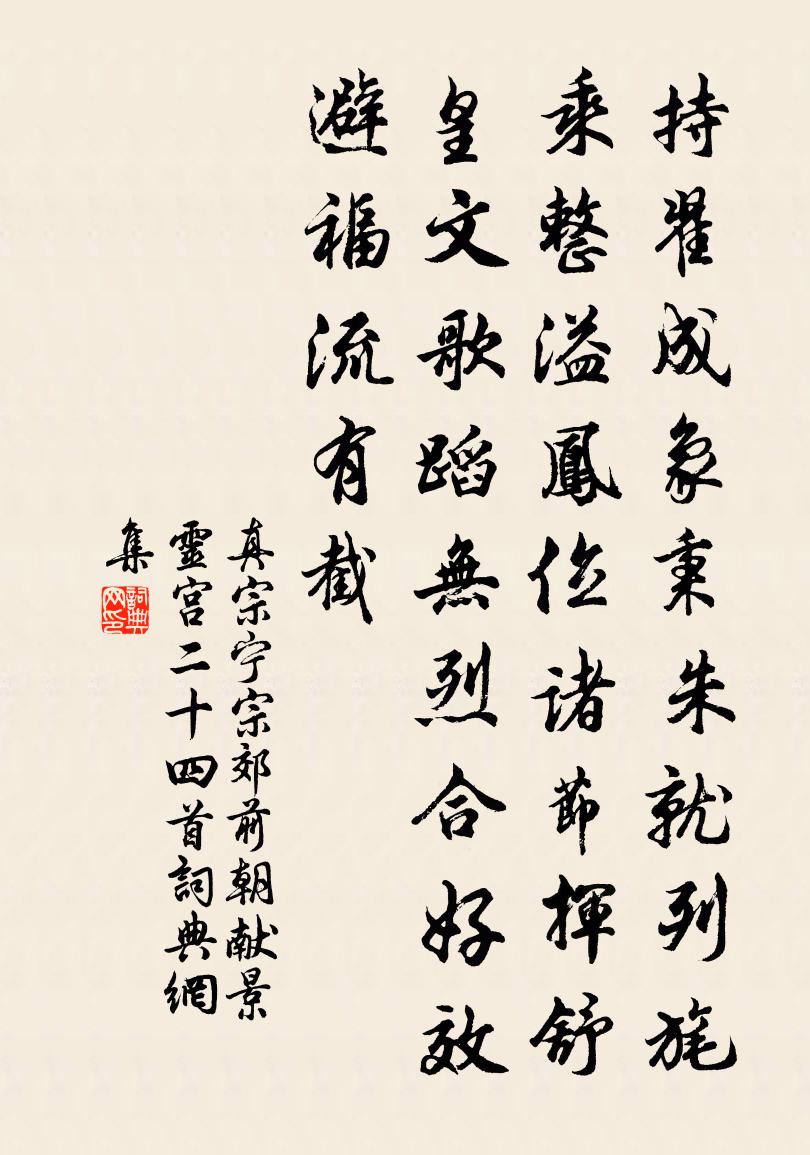 持翟成象秉朱就列旄
乘整溢鳳位諸節揮舒
皇文歌蹈無烈合好效
避福流有截
真宗宁宗郊前朝献景
靈宮二十四首詞典網
集
詞典网印